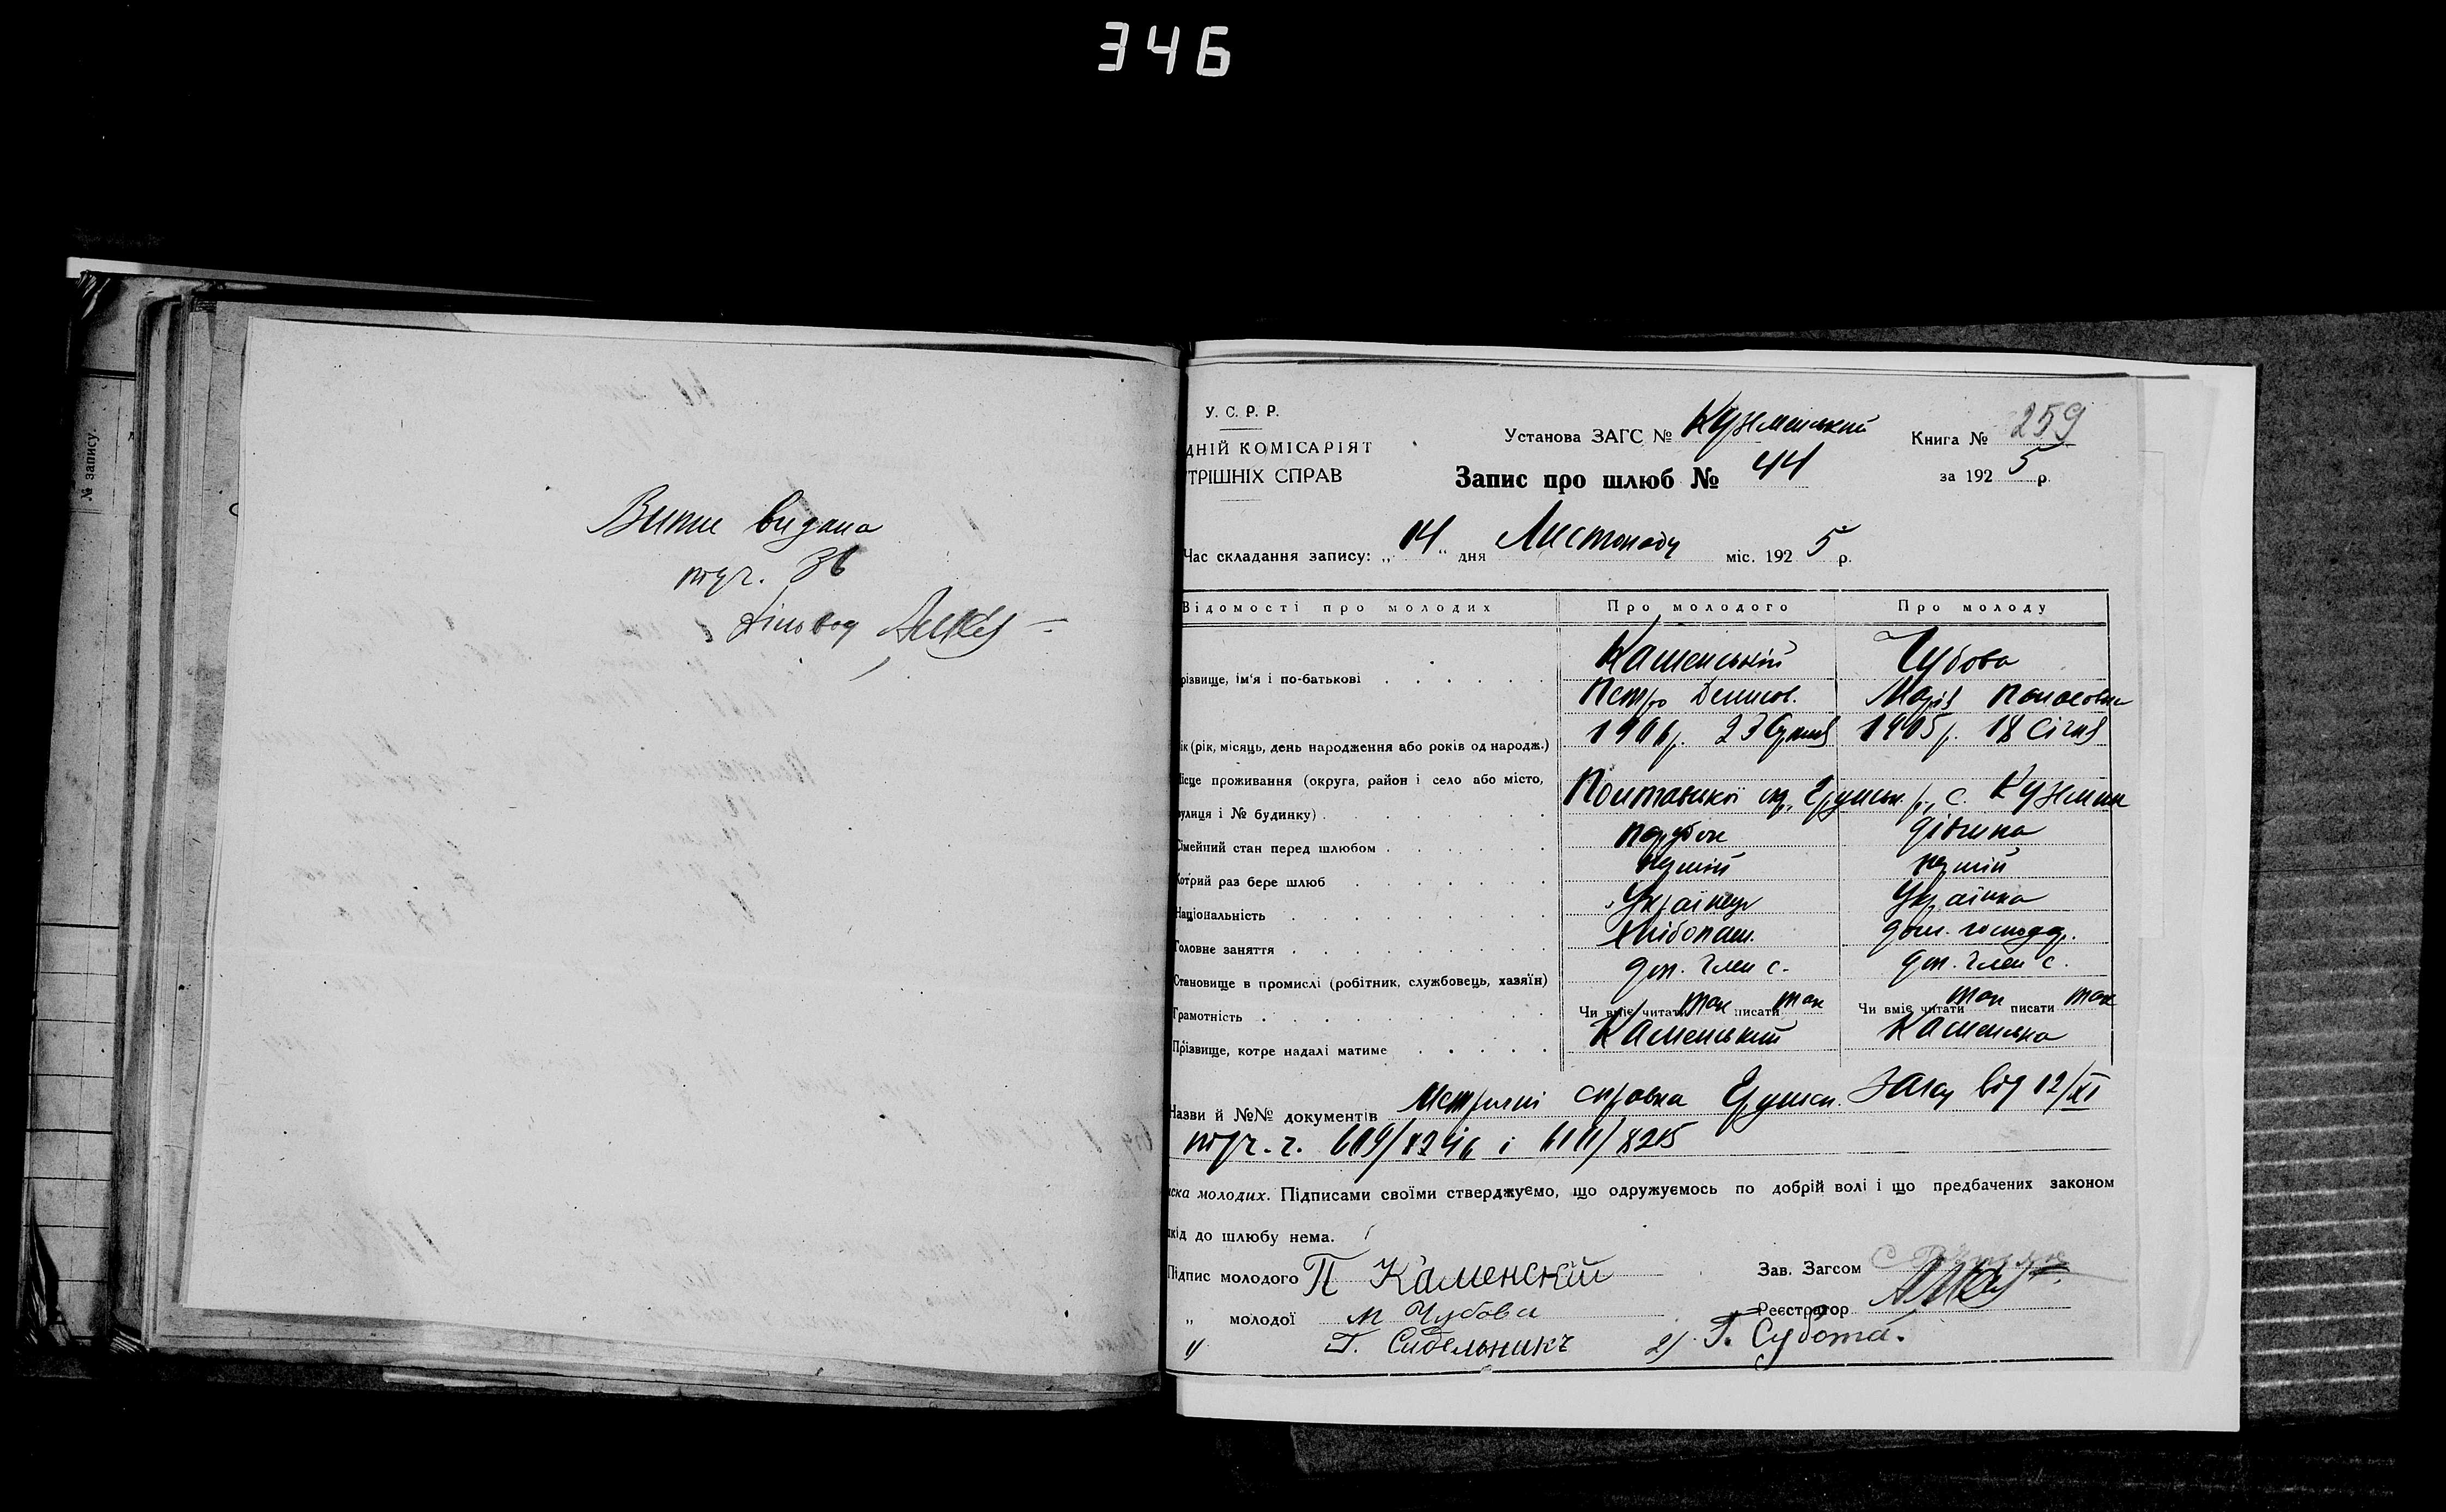 346
№ запису.
видана
Діловод
У. С. Р. Р.
ДНІЙ КОМІСАРІЯТ
ТРІШНІХ СПРАВ
Установа ЗАГС № Куземський
Книга № 259
Запис про шлюб № 44
за 192 5 р.
Час складання запису: „ 14 “ дня Листопаду міс. 192 5 р.
Відомості про молодих
Про молодого
Про молоду
різвище, ім'я і по-батькові
Каменській
Чубова
Петро Денисов.
Марія Панасовна
ік (рік, місяць, день народження або років од народж.)
1906 р.
1905 р. 18 Січня
ісце проживання (округа, район і село або місто,
вулиця і № будинку)
Полтавської окр., р., с. Куземин
Сімейний стан перед шлюбом
парубок
дівчина
Котрий раз бере шлюб
перший
перший
Національність
Українець
Українка
Головне заняття
Хлібопаш.
дом. господар.
Становище в промислі (робітник, службовець, хазяїн)
доп. член с.
доп. член с.
Грамотність
Чи вміє читати так писати так
Чи вміє читати так писати так
Прізвище, котре надалі матиме
Каменський
Каменська
Назви й №№ документів Метричні справка Загсу від 12/XI
иска молодих. Підписами своїми стверджуємо, що одружуємось по добрій волі і що предбачених законом
шкід до шлюбу нема.
Підпис молодого П Каменскій
Зав. Загсом
„ молодої М Чубова
Реєстратор
1) Т. Сидельникъ 2) Г. Субота.